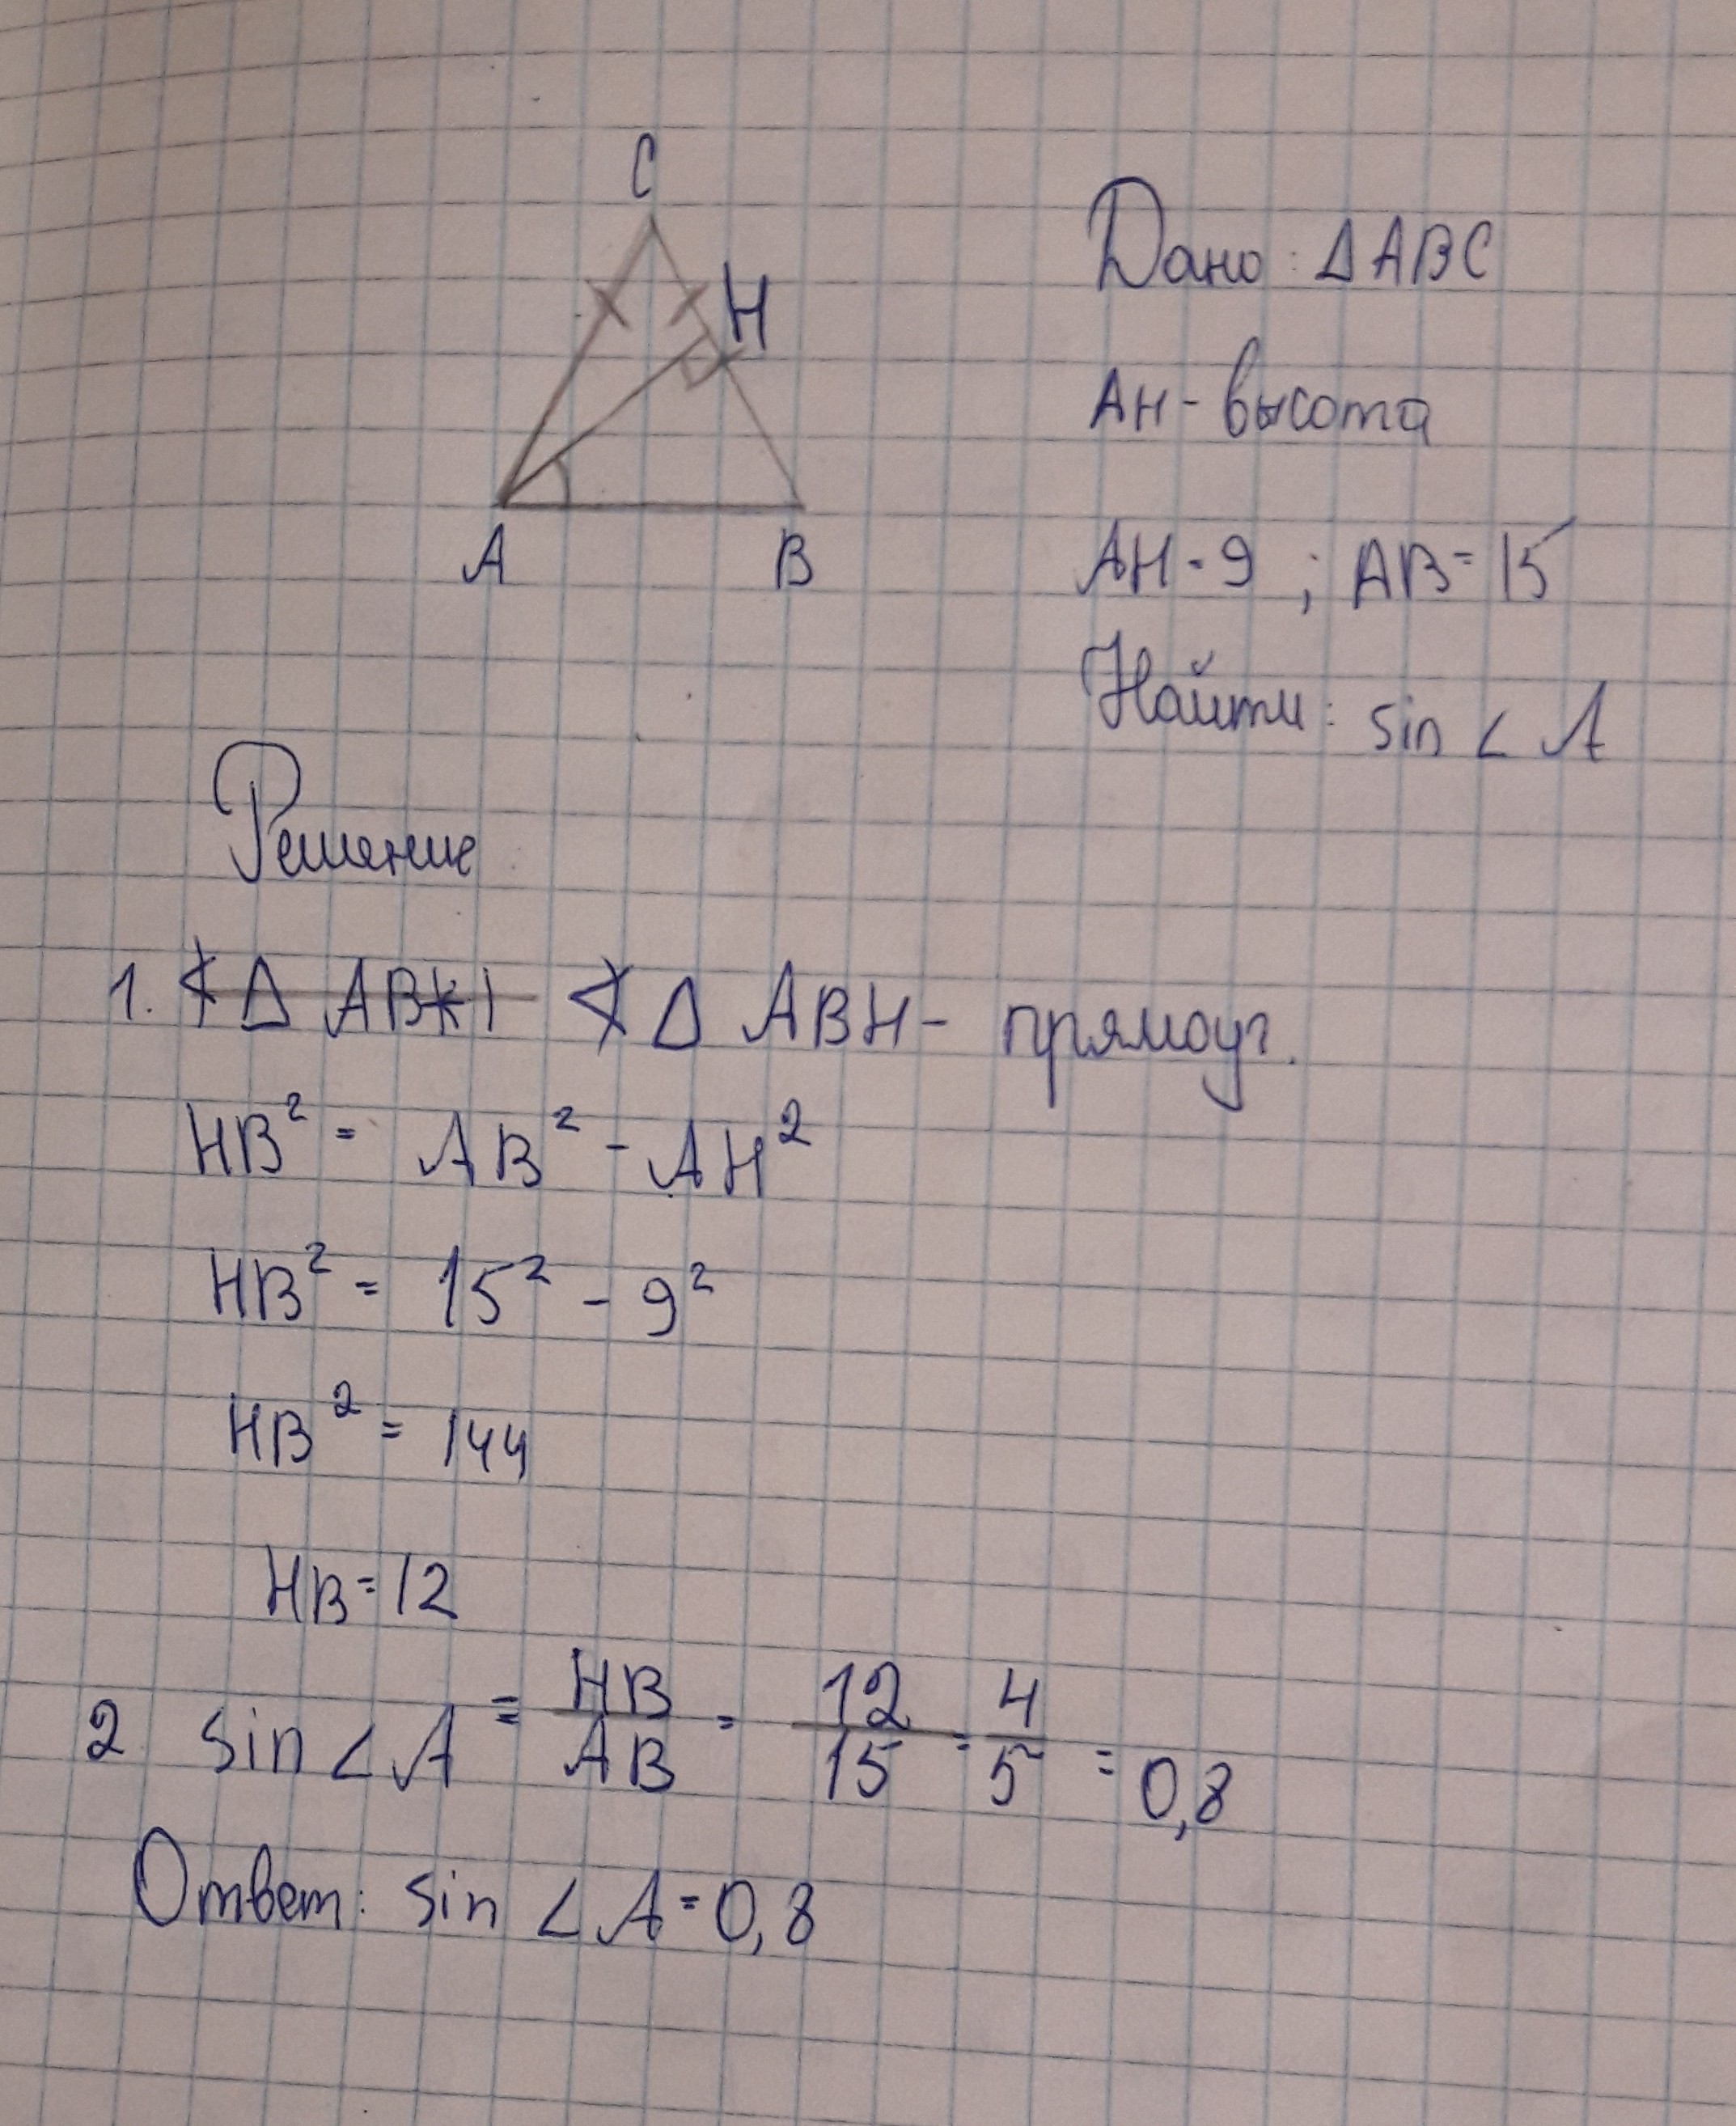 C
H
A B
Дано: Δ ABC
AH - высота
AH = 9 ; AB = 15
Найти: sin ∠ A
Решение
1. ∢ Δ ABH - прямоуг.
HB² = AB² - AH²
HB² = 15² - 9²
HB² = 144
HB = 12
2 sin ∠ A = HB/AB = 12/15 = 4/5 = 0,8
Ответ: sin ∠ A = 0,8